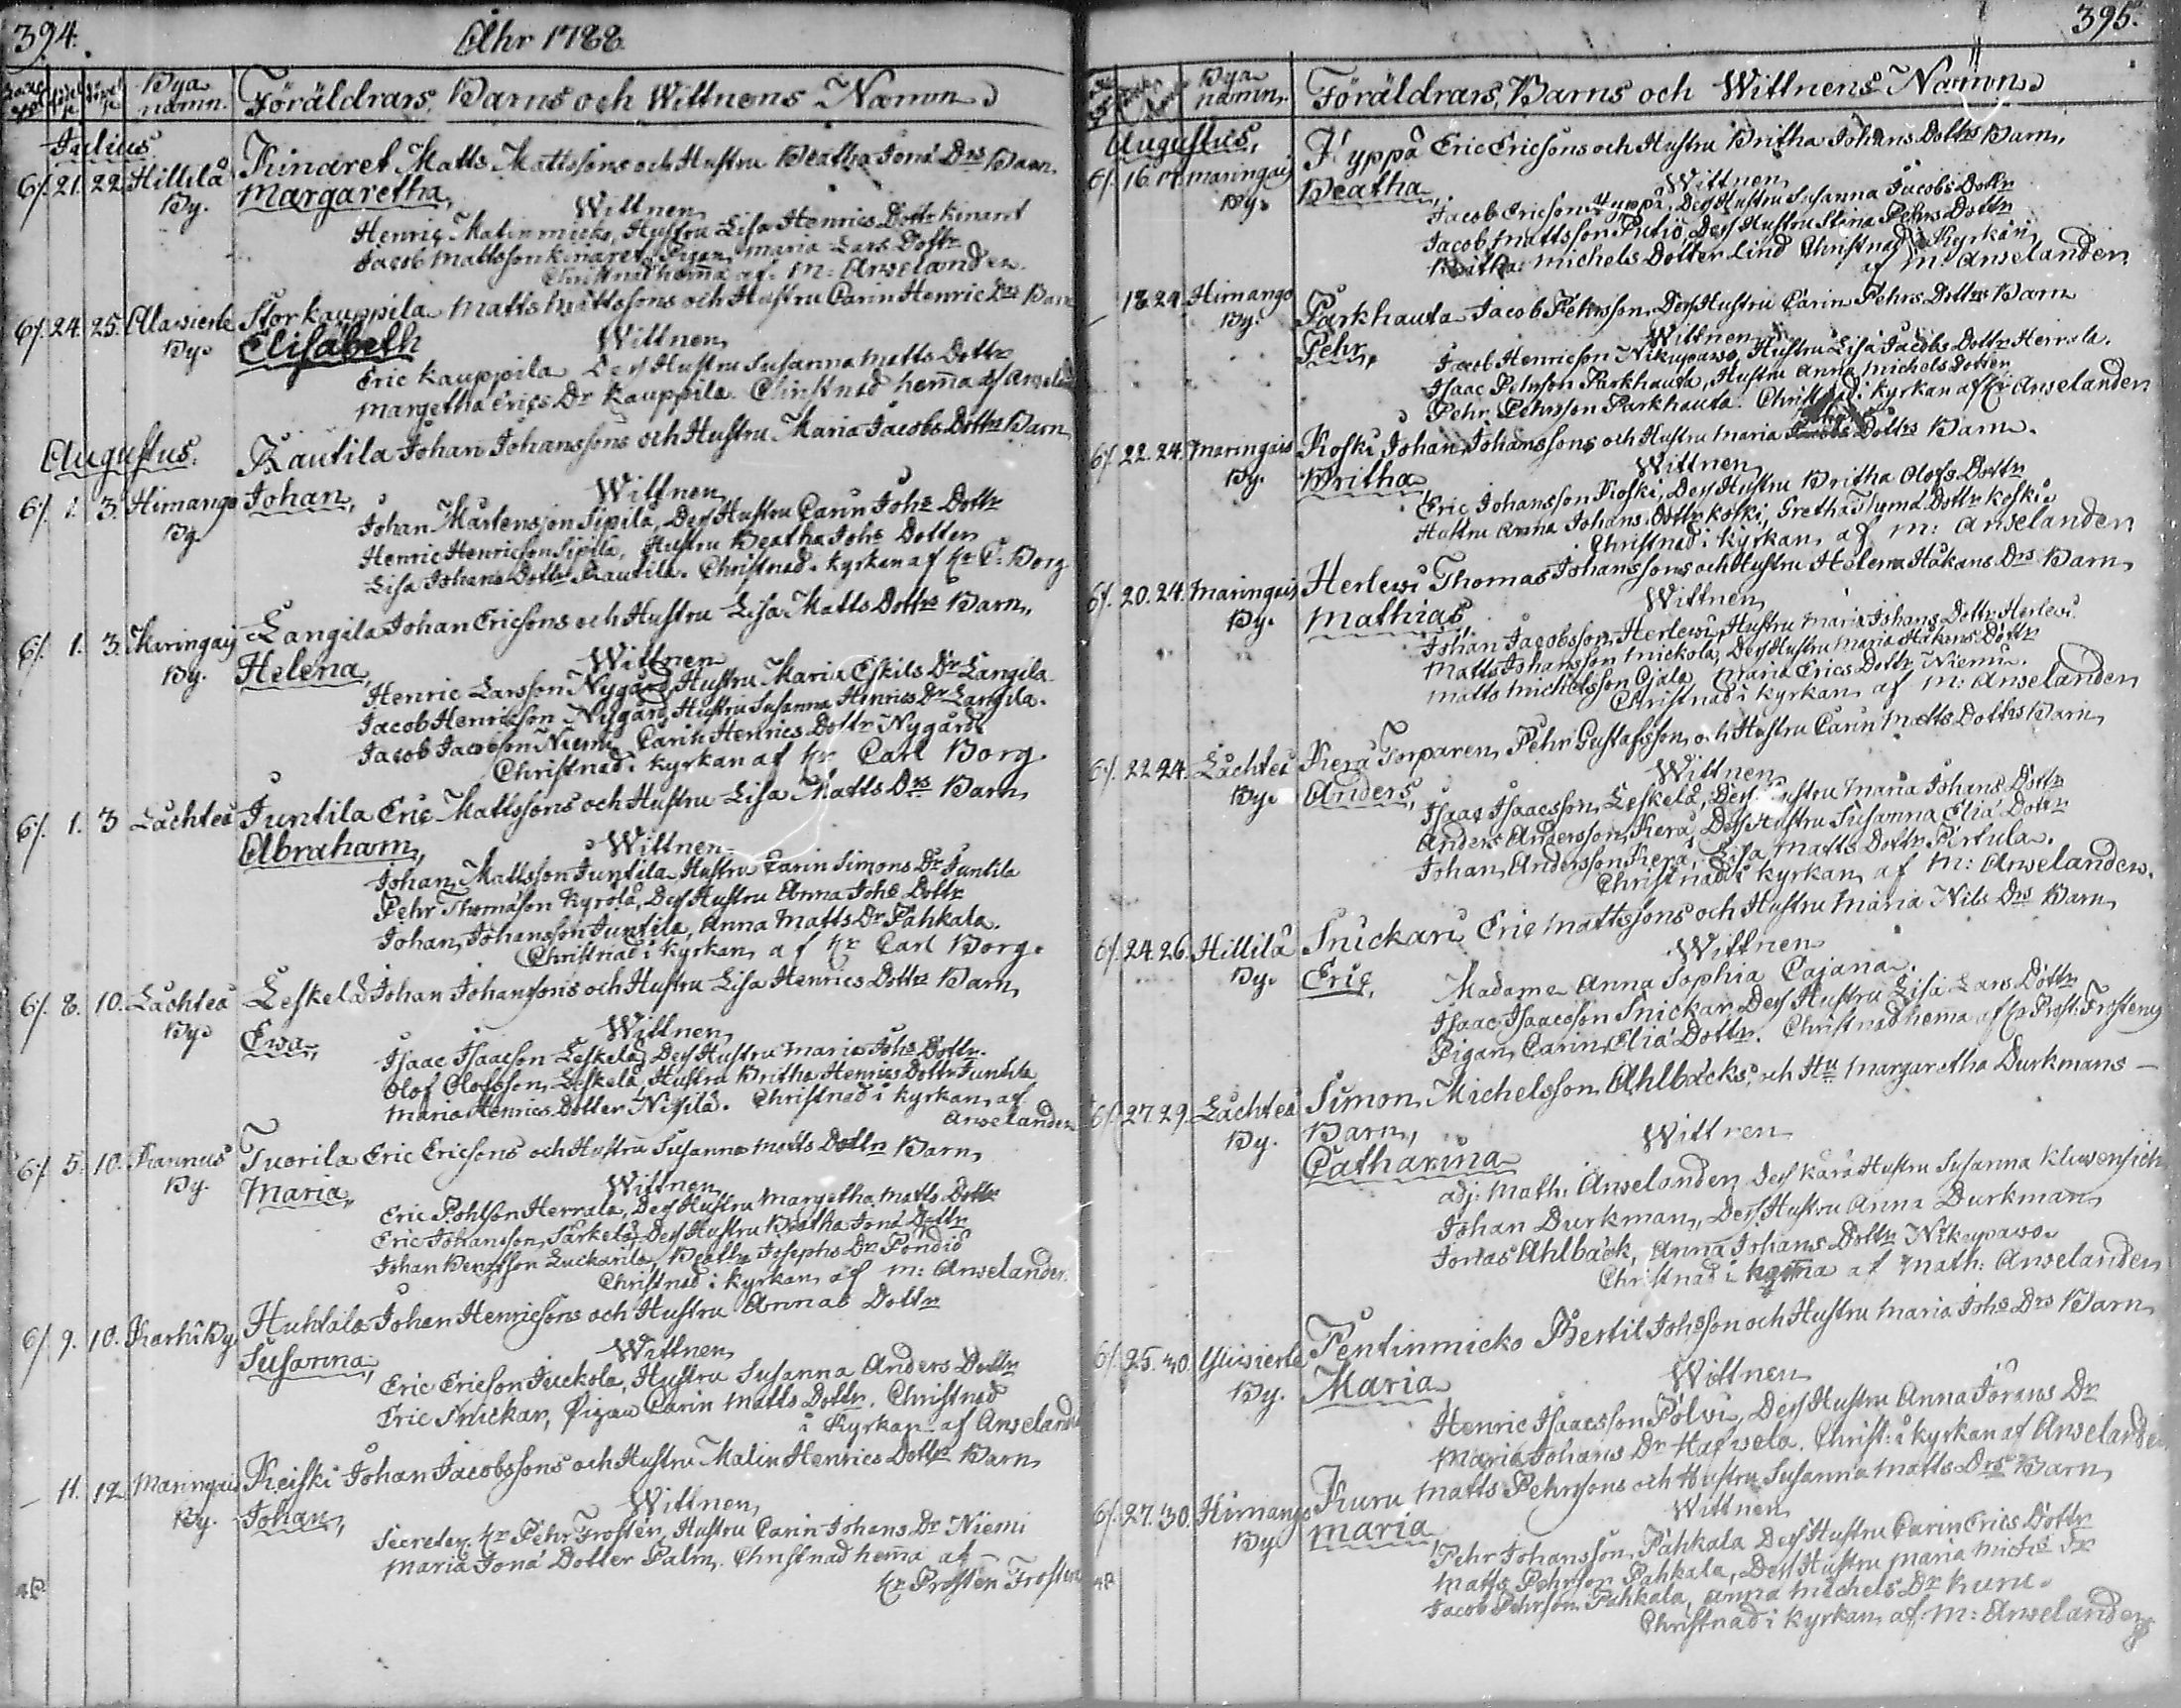 394.
Åhr 1788
Bya namn. Föräldrars, Barns och Wittnens Namn
Julius
6/. 21. 22. Hillilå By. Kinaret Matts Mattssons och Hustru Beatha Jona Drs Barn
Margaretha,
Wittnen
Henric Matinmicko, Hustru Lisa Henrics Dottr Kinaret
Jacob Mattsson Kinaret, Pigan Maria Lars Dottr
Christnad hema af M: Anselander.
6/. 24. 25. Alawierle By. Storkauppila Matts Mattssons och Hustru Carin Henric Drs Barn
Elisabeth
Wittnen
Eric Kauppila Dess Hustru Susanna Matts Dottr
Margetha Erics Dr Kauppila. Christnad hema af Anseland
Augustus.
6/. 1. 3. Himango By Rautila Johan Johanssons och Hustru Maria Jacobs Dottrs Barn
Johan,
Wittnen
Johan Mårtensson Sipilä, Dess Hustru Carin Johs Dottr
Henric Henricson Sipilä, Hustru Beatha Johs Dotter
Lisa Johans Dottr Rautila. Christnad i kyrkan af Hr C: Borg
6/. 1. 3. Maringais By. Langila Johan Ericsons och Hustru Lisa Matts Dottrs Barn,
Helena,
Wittnen
Henric Larsson Nygård, Hustru Maria Eskils Dr Langila
Jacob Henricson Nygård, Hustru Susanna Henrics Dr Langila.
Jacob Jacobson Niemi, Carin Henrics Dottr Nygård
Christnad i kyrkan af Hr Carl Borg.
6/. 1. 3 Lachteå Juntila Eric Mattssons och Hustru Lisa Matts Drs Barn
Abraham,
Wittnen
Johan Mattsson Juntila Hustru Carin Simons Dr Juntila
Pehr Thomasson Kyrölä, Dess Hustru Anna Johs Dottr
Johan Johansson Juntila, Anna Matts Dr Pahkala.
Christnad i kyrkan af Hr Carl Borg.
6/. 8. 10. Lachteå By. Leskelä Johan Johanssons och Hustru Lisa Henrics Dottrs Barn
Ewa,
Wittnen
Isaac Isaacson Leskelä, Dess Hustru Maria Johs Dottr.
Olof Olofsson Leskelä, Hustru Britha Henrics Dottr Juntila
Maria Henrics Dotter Niſilä. Christnad i kyrkan af
Anselander
6/. 5. 10. Kannus By. Tuorila Eric Ericsons och Hustru Susanna Matts Dottrs Barn
Maria,
Wittnen
Eric Pohlson Herrala, Dess Hustru Margetha Matts Dottr
Eric Johansson Särkelä, Dess Hustru Beatha Jona Dottr
Johan Bengtson Luckarila, Beatha Josephs Dr Pondiö
Christnad i kyrkan af M: Anselander.
6/ 9. 10. Karhi By Huhtala Johan Henricsons och Hustru Annas Dottr
Susanna,
Wittnen
Eric Ericson Juckola, Hustru Susanna Anders Dottr
Eric Snickar, Pigan Carin Matts Dottr. Christnad
i kyrkan af Anseland
11. 12. Maringais By. Keiski Johan Jacobssons och Hustru Malin Henrics Dottr Barn
Johan,
Wittnen,
Secreter. Hr Pehr Frosten, Hustru Carin Johans Dr Niemi
Maria Jona Dotter Palm. Christnad hema af
Hr Prosten Frosten
395.
Bya namn. Föräldrars, Barns och Wittnens Namn
Augustus,
6/. 16. 17. Maringais By. Hyppä Eric Ericsons och Hustru Britha Johans Dottrs Barn,
Beatha,
Wittnen
Jacob Ericson Hyppä, Dess Hustru Susanna Jacobs Dottr
Jacob Mattsson Putiö, Dess Hustru Stina Pehrs Dottr
Britha Michels Dotter Lind Christnad i Kyrkan
af M: Anselander
18. 24. Himango By. Parkhauta Jacob Pehrsson Dess Hustru Carin Pehrs Dottrs Barn
Pehr,
Wittnen
Jacob Henricson Nikupawo, Hustru Lisa Jacobs Dottr Herrala.
Isaac Pehrson Parkhauta, Hustru Anna Michels Dotter
Pehr Pehrsson Parkhauta. Christnad i kyrkan af Hr Anselander
6/. 22. 24. Maringais By. Koski Johan Johanssons och Hustru Maria Dottrs Barn.
Britha
Wittnen
Eric Johansson Koski, Dess Hustru Britha Olofs Dottr
Hustru Anna Johans Dottr Koski, Gretha Thyma Dottr Koski.
Christnad i kyrkan af M: Anselander
6/. 20. 24. Maringais By. Herlewi Thomas Johanssons och Hustru Helena Håkans Drs Barn
Mathias
Wittnen
Johan Jacobsson Herlewi, Hustru Maria Johans Dottr Herlewi
Matts Johansson Mickola, Dess Hustru Maria Håkans Dottr
Matts Michelsson Ojala, Maria Erics Dottr Niemi.
Christnad i kyrkan af M: Anselander
6/. 22. 24. Lachteå By. Kerä Torparen Pehr Gustafsson och Hustru Carin Matts Dottrs Barn
Anders,
Wittnen
Isaac Isaacsson Leskelä, Dess Hustru Maria Johans Dottr
Anders Andersson Kerä, Dess Hustru Susanna Elia Dottr
Johan Andersson Kerä, Lisa Matts Dottr Pirtula.
Christnad i kyrkan af M: Anselander.
6/. 24. 26. Hillilå By. Snickari Eric Mattssons och Hustru Maria Nils Drs Barn
Eric,
Wittnen
Madame Anna Sophia Cajana.
Isaac Isaacsson Snickar, Dess Hustru Lisa Lars Dottr
Pigan Carin Elia Dottr. Christnad hema af Hr Prost: Frosteng
6/. 27. 29. Lachteå By. Simon Michelsson Ahlbäcks, och Hu Margaretha Durkmans
Barn,
Catharina
Wittnen
adj: Math: Anselander, dess kära Hustru Susanna Kluwensich
Johan Durkman, Dess Hustru Anna Durkman
Jonas Ahlbäck, Anna Johans Dottr Nikupawo.
Christnad i hema af Math: Anselander
6/. 25. 30. Yliwierle By. Pentinmicko Bertil Johsson och Hustru Maria Johs Drs Barn
Maria
Wittnen
Henric Isaacsson Pölwi, Dess Hustru Anna Jörans Dr
Maria Johans Dr Hafwela. Christ: i kyrkan af Anselander
6/. 27. 30. Himango By Kuru Matts Pehrssons och Hustru Susanna Matts Drs Barn
Maria
Wittnen
Pehr Johansson Pahkala Dess Hustru Carin Erics Dottr
Matts Pehrson Pahkala, Dess Hustru Maria Michs Dr
Jacob Pehrson Pahkala, Anna Michels Dr Kuru.
Christnad i kyrkan af M: Anselander